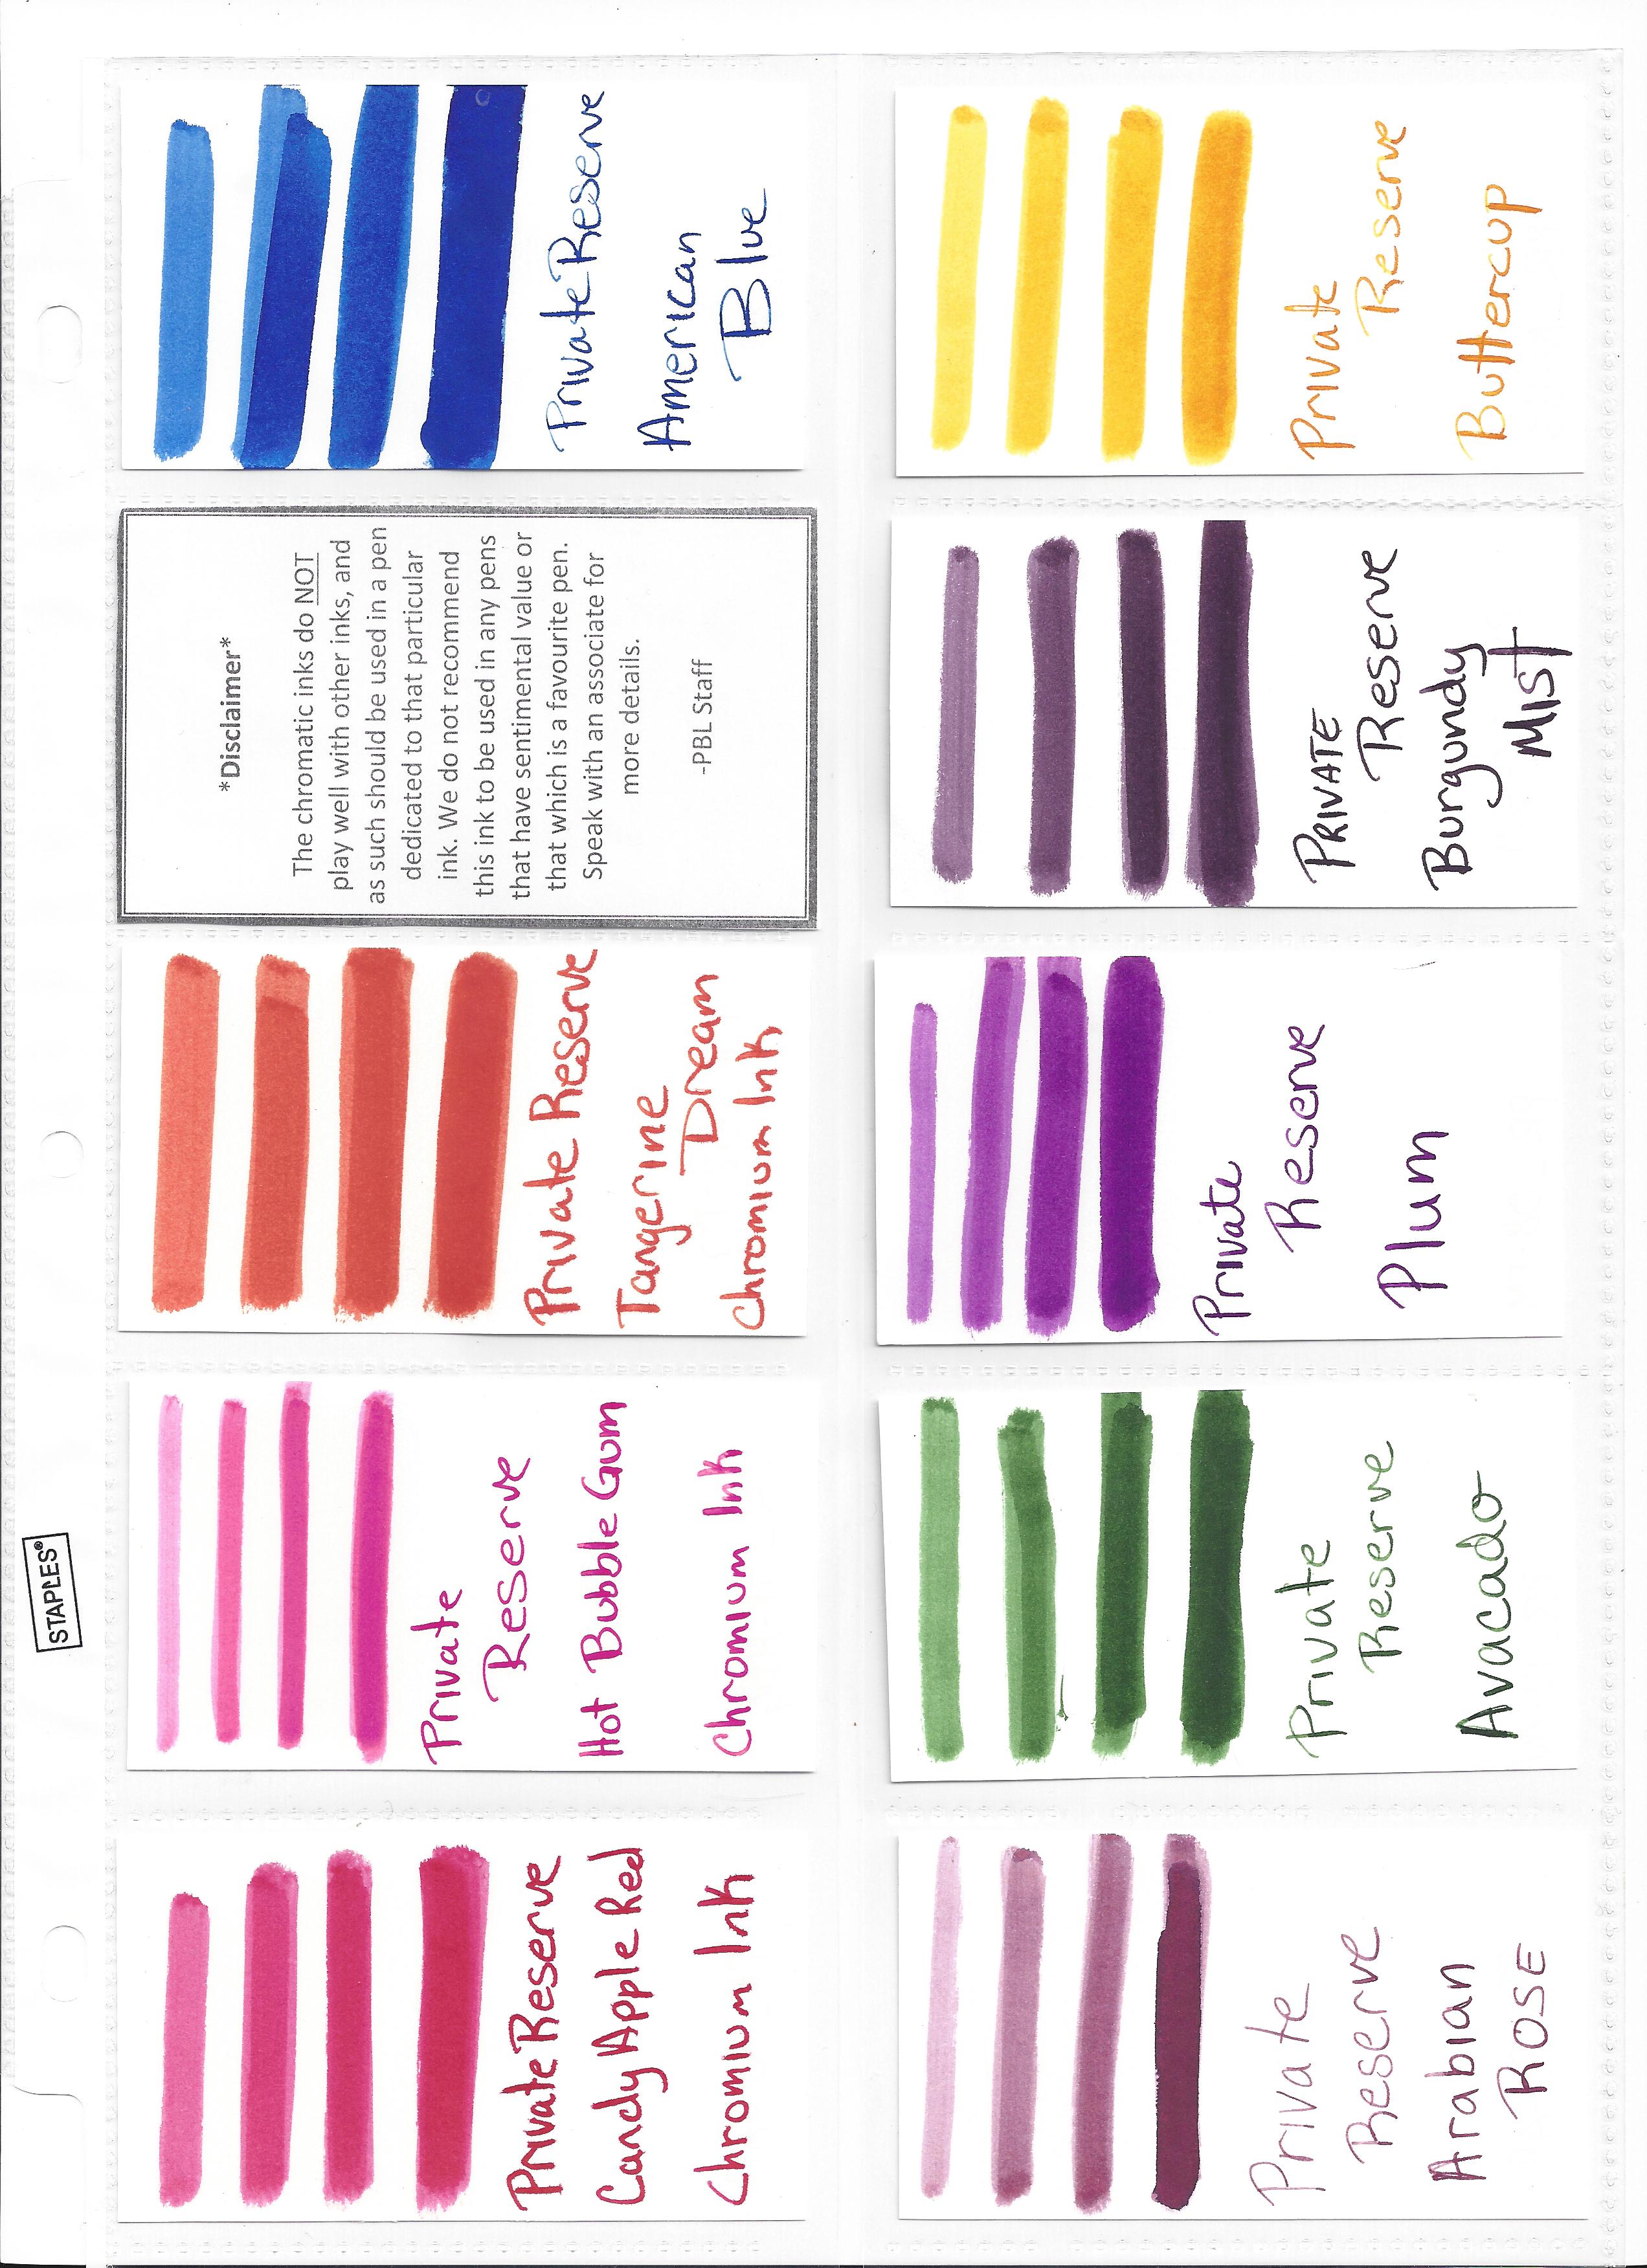 STAPLES®
Private Reserve
Candy Apple Red
Chromium Ink
Private
Reserve
Hot Bubble Gum
Chromium Ink
Private Reserve
Tangerine
Dream
Chromium Ink
*Disclaimer*
The chromatic inks do NOT
play well with other inks, and
as such should be used in a pen
dedicated to that particular
ink. We do not recommend
this ink to be used in any pens
that have sentimental value or
that which is a favourite pen.
Speak with an associate for
more details.
-PBL Staff
Private Reserve
American
Blue
Private
Reserve
Arabian
Rose
Private
Reserve
Avacado
Private
Reserve
Plum
PRIVATE
Reserve
Burgundy
Mist
Private
Reserve
Buttercup